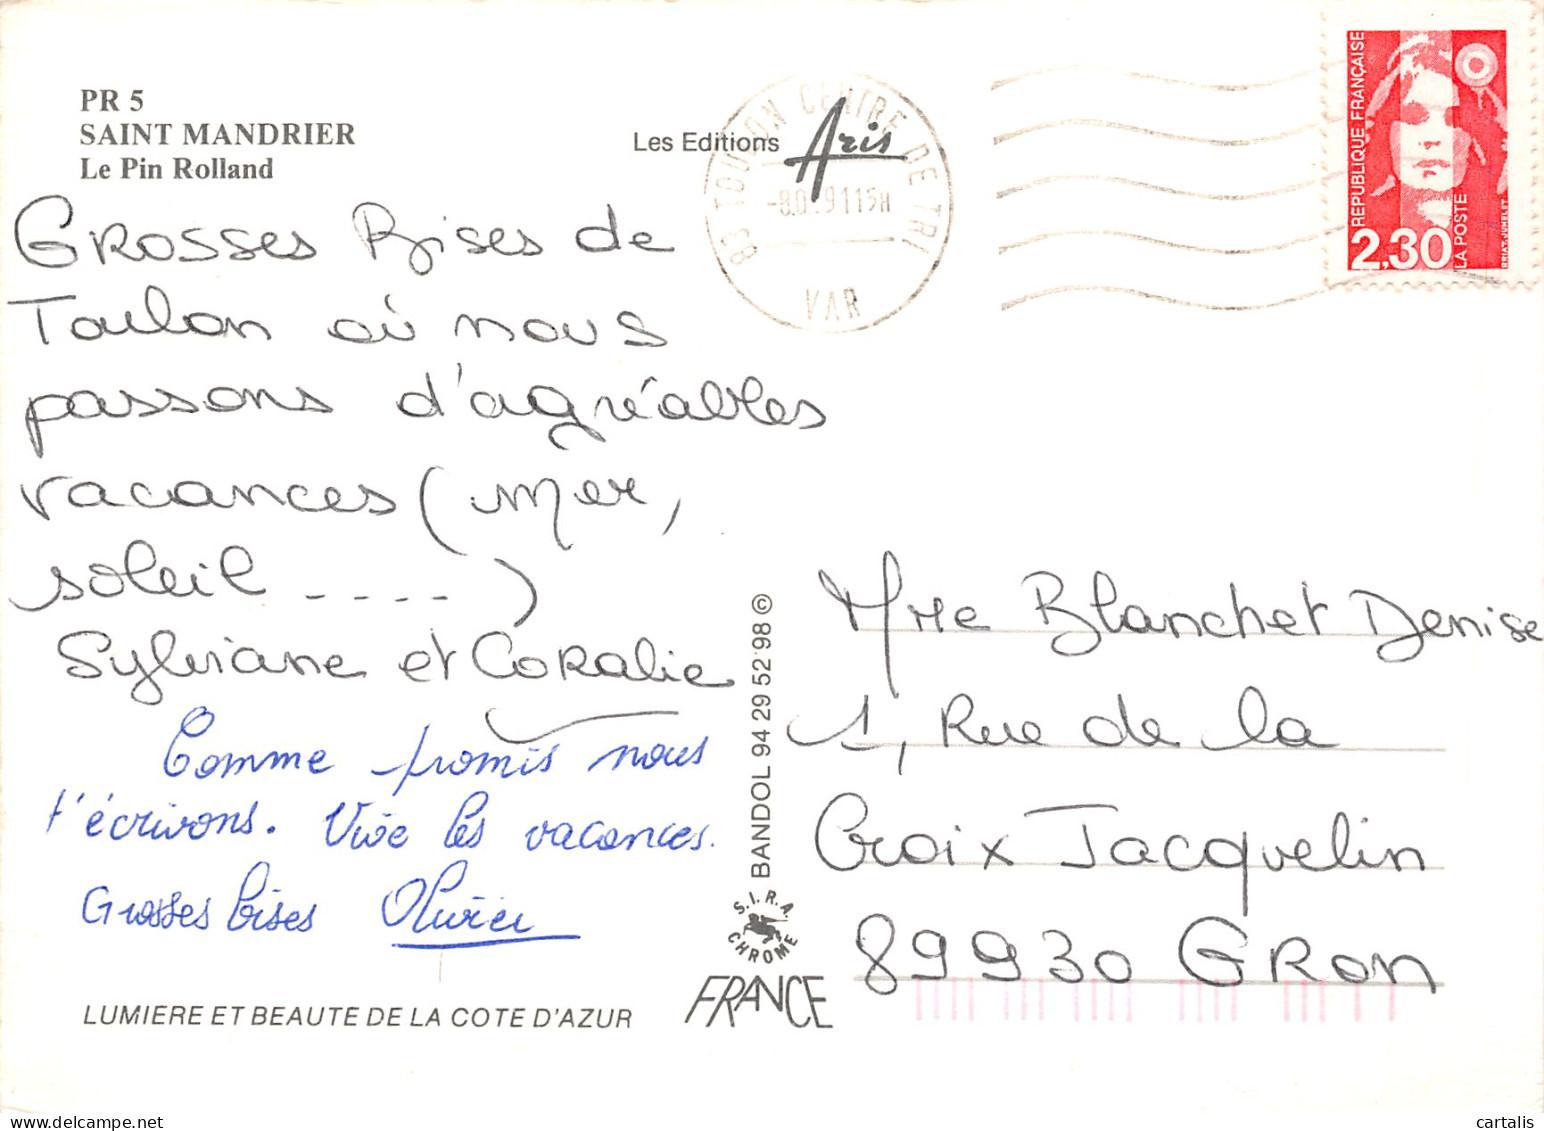 PR 5
SAINT MANDRIER
Le Pin Rolland
Les Editions Aris
83 TOULON CENTRE DE TRI
VAR
REPUBLIQUE FRANÇAISE
2,30
LA POSTE
BRIAT-JUMELET
Grosses Bises de
Toulon où nous
passons d'agréables
vacances (mer,
soleil ....)
Sylviane et Coralie
Comme promis nous
t'écrivons. Vive les vacances.
Grosses bises Olivier
LUMIERE ET BEAUTE DE LA COTE D'AZUR
BANDOL 94 29 52 98 ©
S.I.R.A.
CHROME
FRANCE
Mme Blanchet Denise
1, Rue de la
Croix Jacquelin
89930 GRON
cartalis